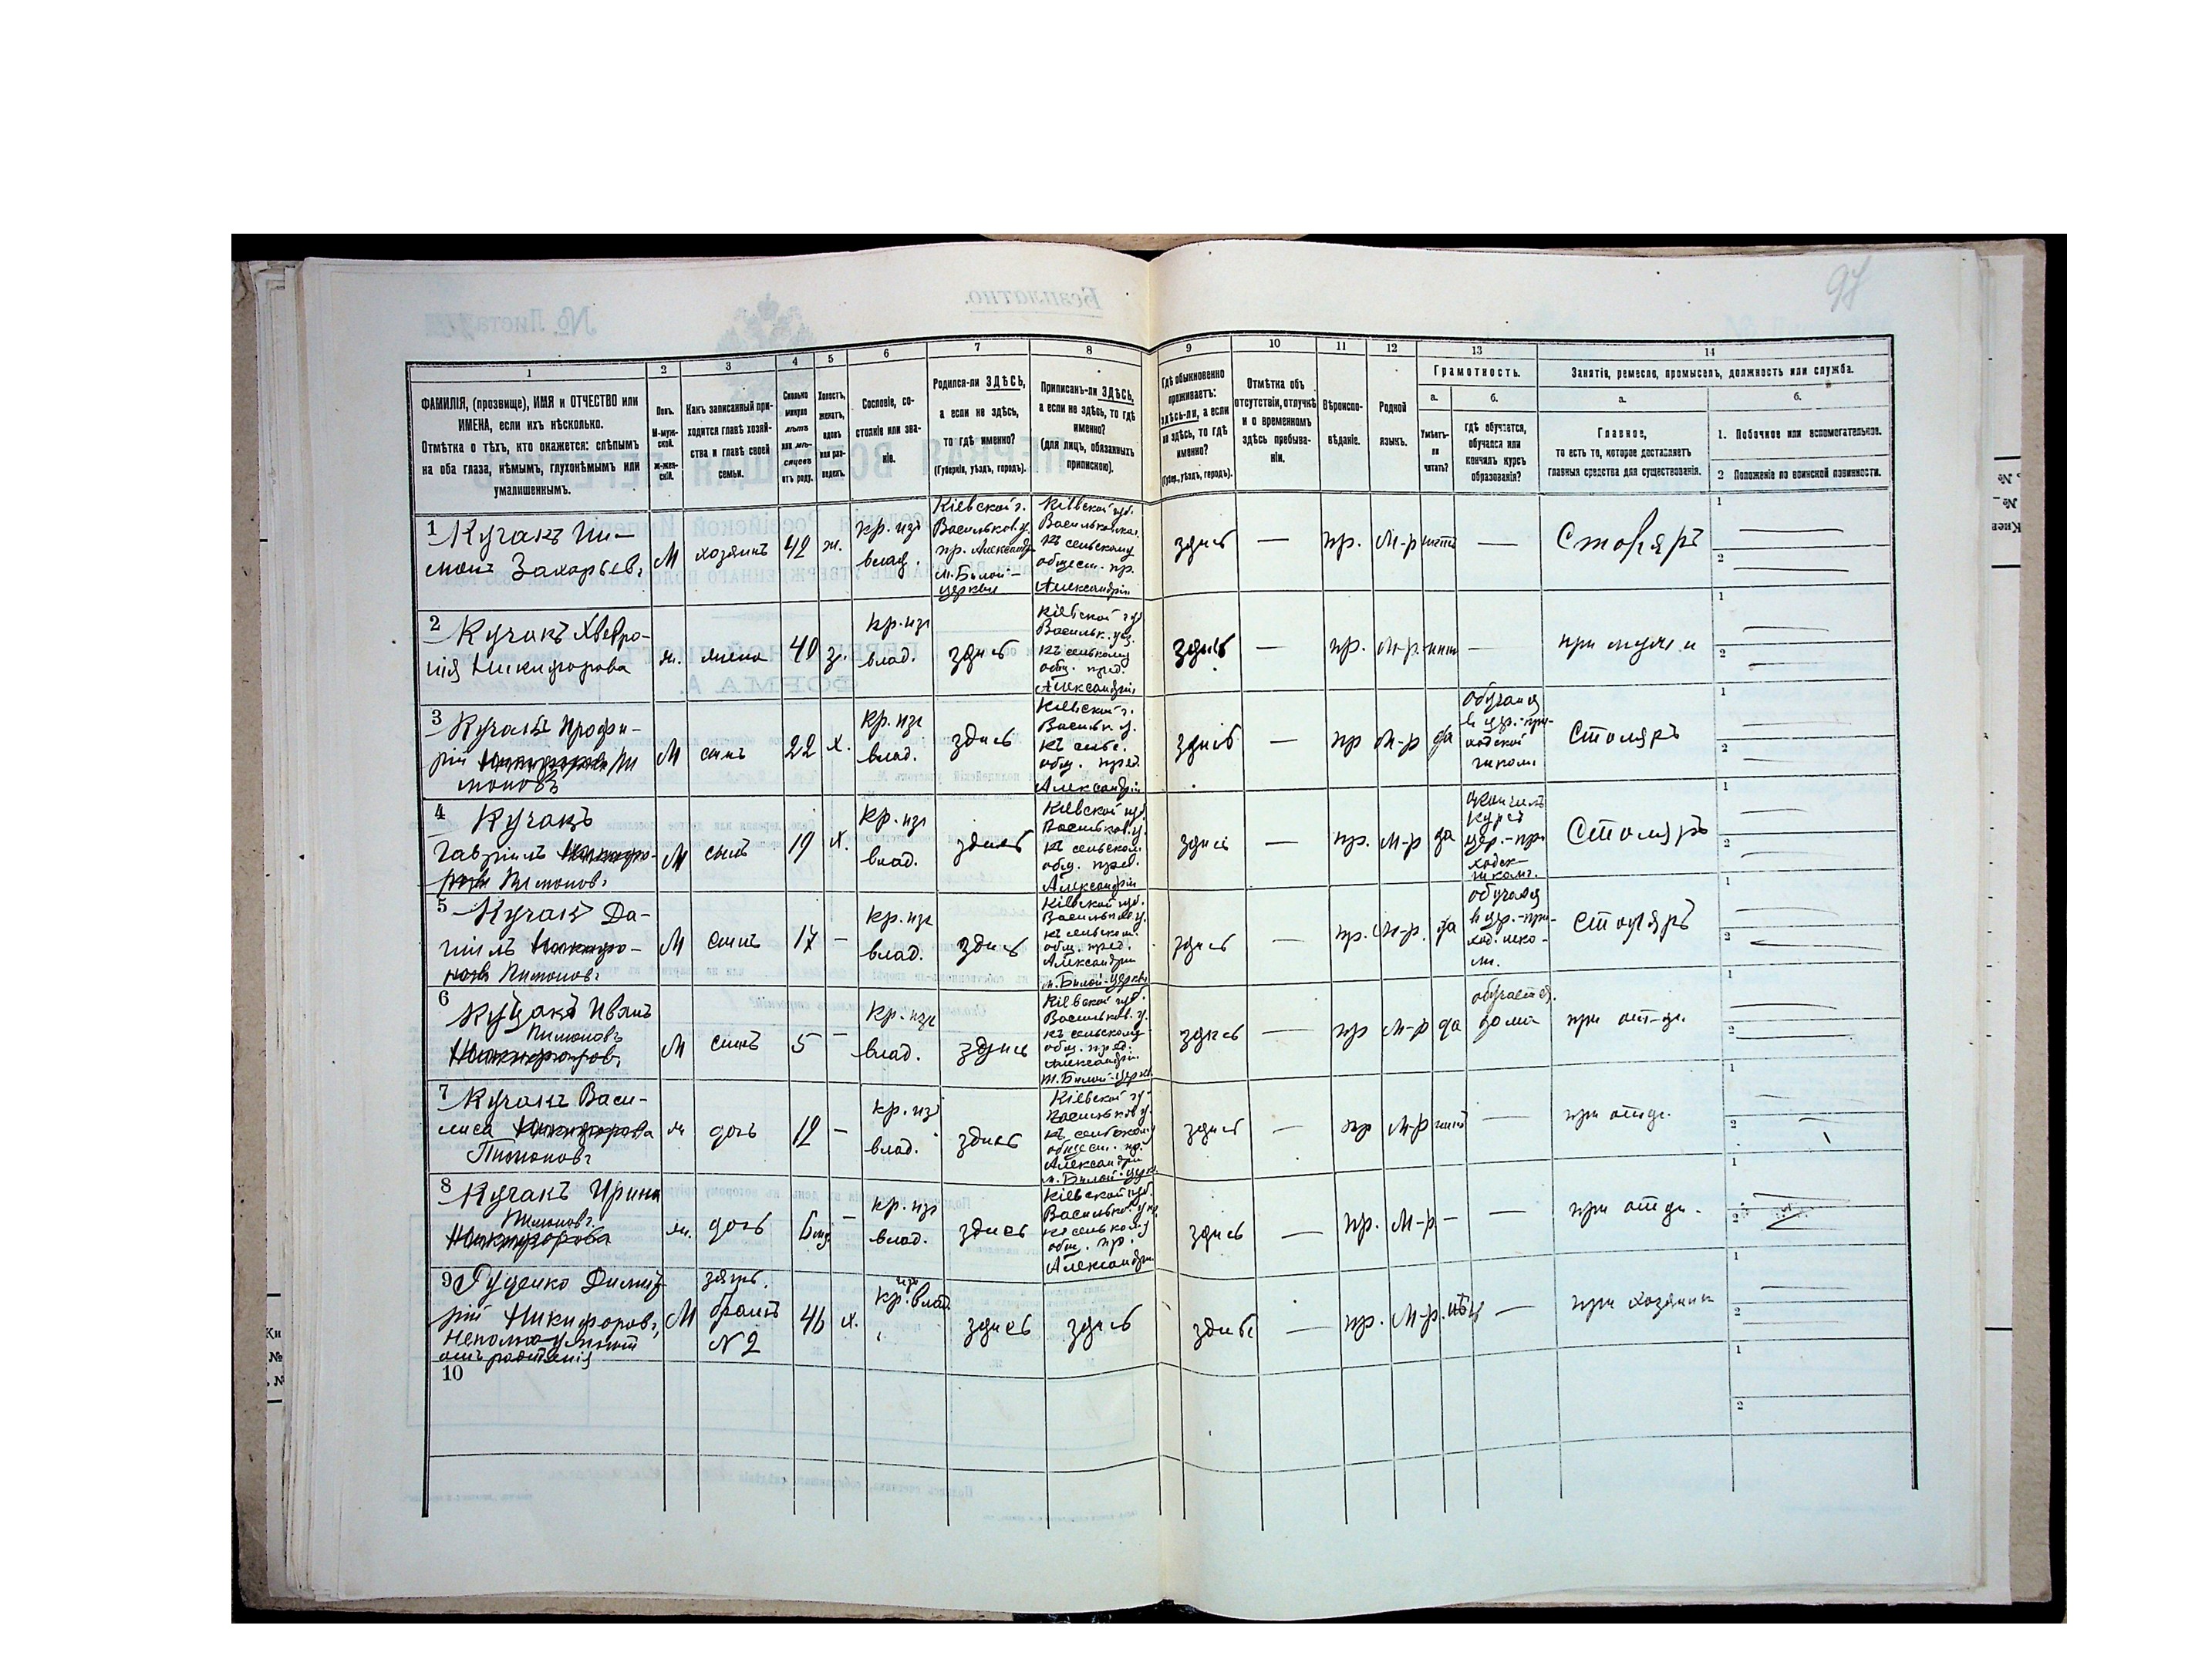 97
1 2 3 4 5 6 7 8 9 10 11 12 13 14
ФАМИЛІЯ, (прозвище), ИМЯ и ОТЧЕСТВО или
ИМЕНА, если ихъ нѣсколько.
Отмѣтка о тѣхъ, кто окажется: слѣпымъ
на оба глаза, нѣмымъ, глухонѣмымъ или
умалишеннымъ.
Полъ.
М-муж-
ской.
ж-жен-
скій.
Какъ записанный при-
ходится главѣ хозяй-
ства и главѣ своей
семьи.
Сколько
минуло
лѣтъ
или мѣ-
сяцевъ
отъ роду.
Холостъ,
женатъ,
вдовъ
или раз-
веденъ.
Сословіе, со-
стояніе или зва-
ніе.
Родился-ли ЗДѢСЬ,
а если не здѣсь,
то гдѣ именно?
(Губернія, уѣздъ, городъ).
Приписанъ-ли ЗДѢСЬ,
а если не здѣсь, то гдѣ
именно?
(для лицъ, обязанныхъ
припискою).
Гдѣ обыкновенно
проживаетъ:
здѣсь-ли, а если
не здѣсь, то гдѣ
именно?
(Губер., уѣздъ, городъ).
Отмѣтка объ
отсутствіи, отлучкѣ
и о временномъ
здѣсь пребыва-
ніи.
Вѣроиспо-
вѣданіе.
Родной
языкъ.
Грамотность.
а.
Умѣетъ-
ли
читать?
б.
гдѣ обучается,
обучался или
кончилъ курсъ
образованія?
Занятія, ремесло, промыселъ, должность или служба.
а.
Главное,
то есть то, которое доставляетъ
главныя средства для существованія.
б.
1. Побочное или вспомогательное.
2 Положеніе по воинской повинности.
1 Кучакъ Пи-
монъ Захарьев.
М
хозяинъ
42
ж.
кр. изъ
влад.
Кіевской г.
Васильков. у.
пр. Александр
м. Бѣлой-
церкви
Кіевской губ.
къ сельскому
общест. пр.
Александріи
здѣсь
—
пр.
М-р
нѣтъ
—
Столяръ
1
2
2 Кучакъ Хвевро-
нія Никифорова
ж.
жена
40
з.
кр. изъ
влад.
здѣсь
Кіевской губ
Васильк. уѣз.
къ сельскому
общ. пред.
Александріи
здѣсь
—
пр.
М-р.
нѣтъ
—
при мужѣ
1
2
3 Кучакъ Профи-
рій Никифоровъ Пи
моновъ
М
сынъ
22
х.
кр. изъ
влад.
здѣсь
Кіевской г.
Васильк. у.
къ сельс.
общ. пред.
Александріи
здѣсь
—
пр
М-р
да
обучался
в цер.-при-
ходской
школѣ
Столяръ
1
2
4 Кучакъ
Гавріилъ Никифо-
ровъ Пимонов.
М
сынъ
19
х.
кр. изъ
влад.
здѣсь
Кіевской губ.
Васильков. у.
къ сельском.
общ. пред.
Александріи
здѣсь
—
пр.
М-р
да
окончилъ
курсъ
цер.-при
ходск-
школ.
Столяръ
1
2
5 Кучакъ Да-
ніилъ Никифо-
ровъ Пимонов.
М
сынъ
17
—
кр. изъ
влад.
здѣсь
Кіевской губ.
Васильков у.
къ сельском.
общ. пред.
Александріи
м. Бѣлой-церкви
здѣсь
—
пр.
М-р.
да
обучался
в цер.-при-
ход. шко-
лѣ.
Столяръ
1
2
6 Кучакъ Иванъ
Пимоновъ
Никифоров.
М
сынъ
5
—
кр. изъ
влад.
здѣсь
Кіевской губ.
Васильков. у.
къ сельскому
общ. пред.
Александріи
м. Бѣлой-церкв.
здѣсь
—
пр
М-р
да
обучается
дома
при отцѣ.
1
2
7 Кучакъ Васи-
лиса Никифорова
Пимонов.
ж
дочь
12
—
кр. изъ
влад.
здѣсь
Кіевской гу-
Васильков у.
къ сельскому
общест. пр.
Александріи
м. Бѣлой-церкв.
здѣсь
—
пр
М-р
нѣтъ
—
при отцѣ.
1
2
8 Кучакъ Ирина
Пимонов.
Никифорова
ж.
дочь
—
кр. изъ
влад.
здѣсь
Кіевской губ.
къ сельскому
общ. пр.
Александріи
здѣсь
—
пр.
М-р
—
—
при отцѣ.
1
2
9 Гуценко Димит-
рій Никифоров.,
отъ рожденія
М
зять.
братъ
№ 2
46
х.
изъ
кр. влад.
здѣсь
здѣсь
здѣсь
—
пр.
М-р.
нѣтъ
—
при хозяинѣ
1
2
10
1
2